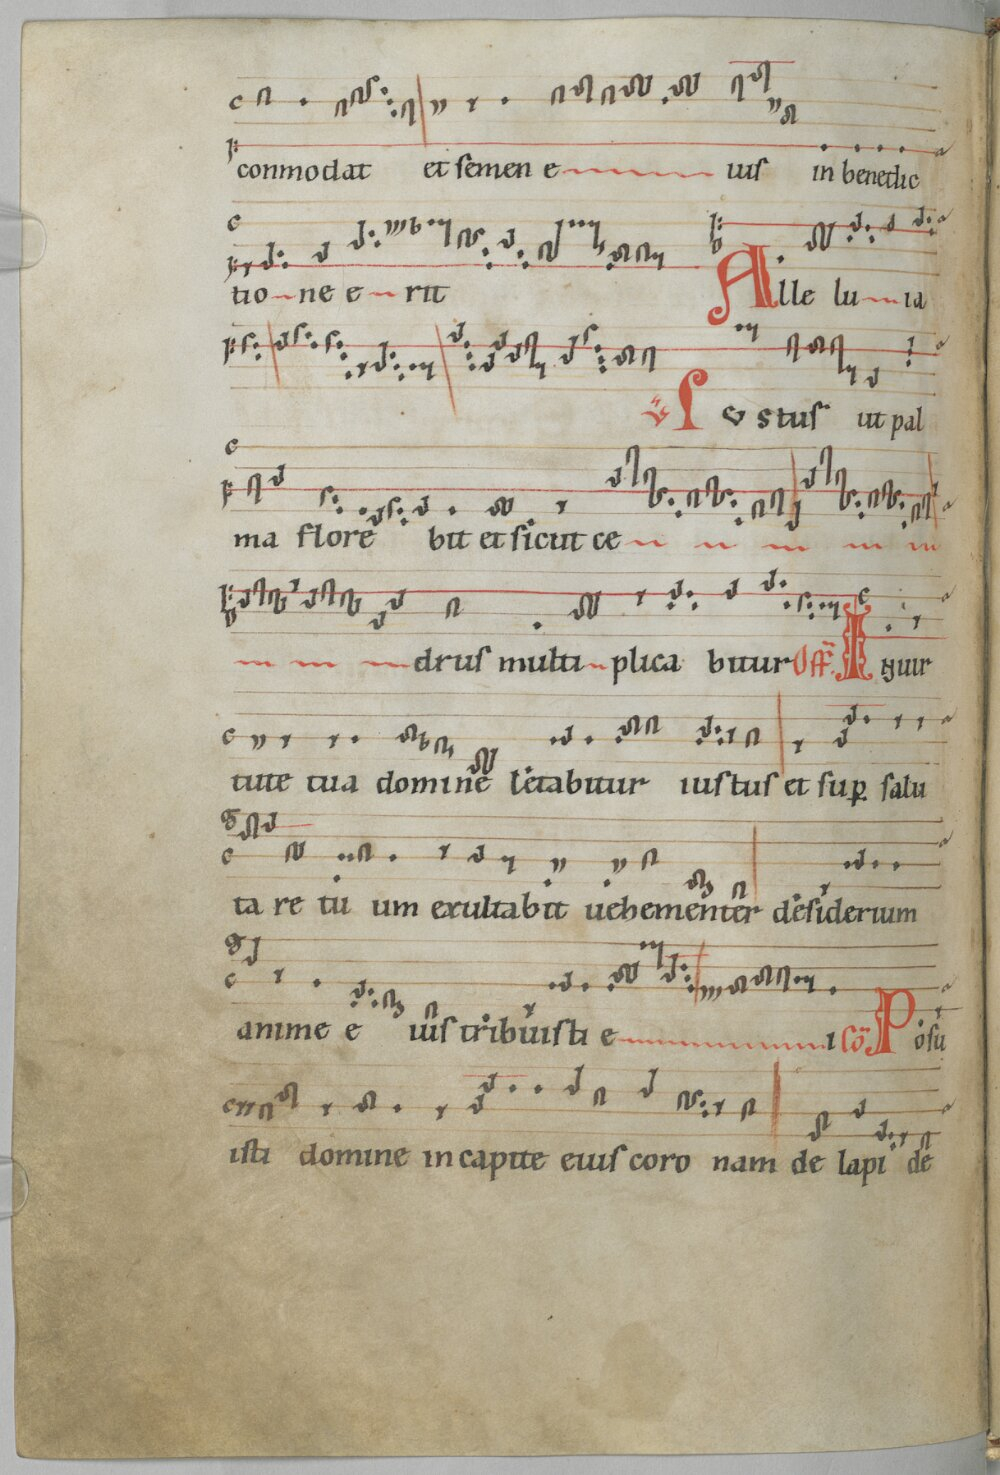 conmodat et semen e uiſ in benedic
tio ne e rit Alle lu ia
℣ I uſtuſ ut pal
ma flore bit et ſicut ce
druſ multi plica bitur Off̄ In uir
tute tua domine letabitur iuſtuſ et ſup ſalu
ta re tu um exultabit uehementer deſiderium
anime e iuſ tribuiſti e i Cō Poſu
iſti domine in capite eiuſ coro nam de lapi de